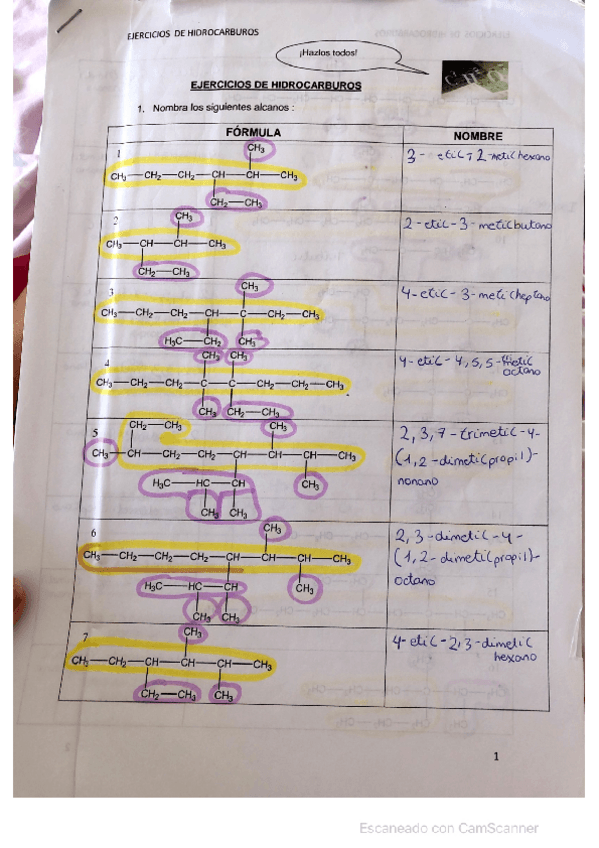 EJERCICIOS DE HIDROCARBUROS
¡Hazlos todos!
EJERCICIOS DE HIDROCARBUROS
1. Nombra los siguientes alcanos :
FÓRMULA NOMBRE
1
CH₃
CH₃—CH₂—CH₂—CH—CH—CH₃
CH₂—CH₃
3- etil-2-metilhexano
2
CH₃
CH₃—CH—CH—CH₃
CH₂—CH₃
2-etil-3-metilbutano
3
CH₃
CH₃—CH₂—CH₂—CH—C—CH₂—CH₃
H₃C—CH₂ CH₃
4-etil-3-metilheptano
4
CH₃ CH₃
CH₃—CH₂—CH₂—C—C—CH₂—CH₂—CH₃
CH₃ CH₂—CH₃
4-etil-4,5,5-
octano
5
CH₂—CH₃ CH₃
CH₃—CH—CH₂—CH₂—CH—CH—CH—CH₃
H₃C—HC—CH CH₃
CH₃ CH₃
2,3,7-trimetil-4-
(1,2-dimetilpropil)-
nonano
6
CH₃
CH₃—CH₂—CH₂—CH₂—CH—CH—CH—CH₃
H₃C—HC—CH CH₃
CH₃ CH₃
2,3-dimetil-4-
(1,2-dimetilpropil)-
octano
7
CH₃
CH₃—CH₂—CH—CH—CH—CH₃
CH₂—CH₃ CH₃
4-etil-2,3-dimetil
hexano
1
Escaneado con CamScanner